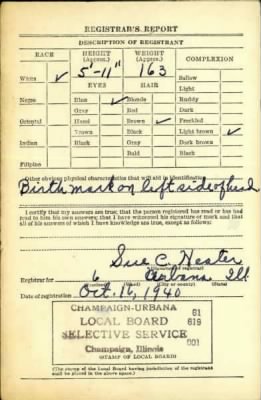 REGISTRAR'S REPORT
DESCRIPTION OF REGISTRANT
RACE HEIGHT (Approx.) WEIGHT (Approx.) COMPLEXION
5'-11" 163
White ✓ Sallow
EYES HAIR Light
Negro Blue ✓ Blonde Ruddy
Gray Red Dark
Oriental Hazel Brown ✓ Freckled
Brown Black Light brown ✓
Indian Black Gray Dark brown
Bald Black
Filipino
Other obvious physical characteristics that will aid in identification
Birth mark on left side of head
I certify that my answers are true; that the person registered has read or has had
read to him his own answers; that I have witnessed his signature or mark and that
all of his answers of which I have knowledge are true, except as follows:
Sue C. Hester
Registrar for 6 Urbana Ill.
(City or county) (State)
Date of registration Oct. 16, 1940
CHAMPAIGN-URBANA 81
LOCAL BOARD 619
SELECTIVE SERVICE
001
Champaign, Illinois
(STAMP OF LOCAL BOARD)
(The stamp of the Local Board having jurisdiction of the registrant
shall be placed in the above space.)